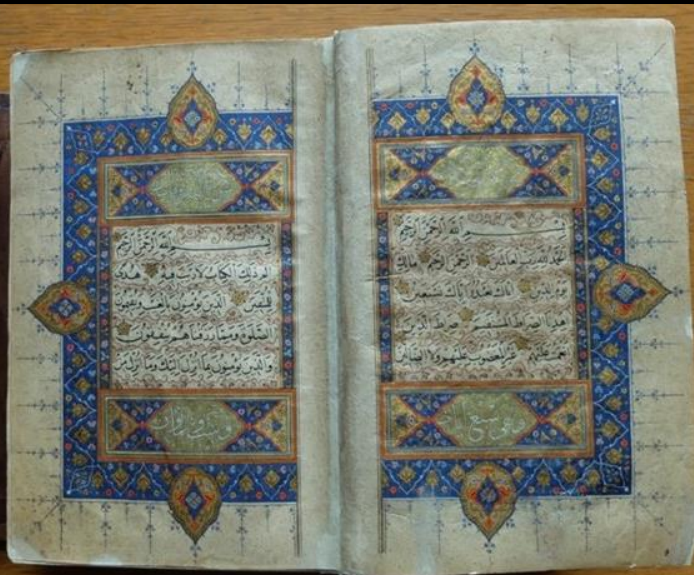 بسم الله الرحمن الرحيم
الحمد لله رب العالمين الرحمن الرحيم مالك
يوم الدين اياك نعبد واياك نستعين
اهدنا الصراط المستقيم صراط الذين
عليهم غير المغضوب عليهم ولا الضالين
سبع
بسم الله الرحمن الرحيم
الم ذلك الكتاب لا ريب فيه هدى
للمتقين الذين يؤمنون بالغيب ويقيمون
الصلوة ومما رزقناهم ينفقون
والذين يؤمنون بما انزل اليك وما انزل من